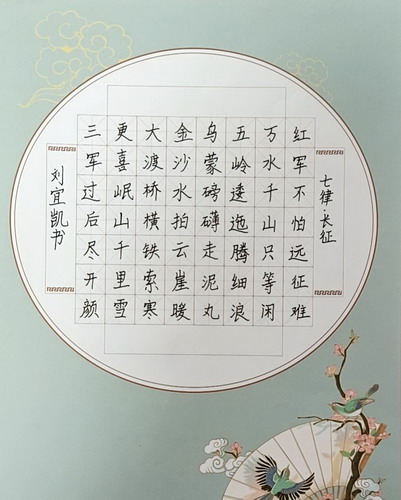 七律·长征
红军不怕远征难
万水千山只等闲
五岭逶迤腾细浪
乌蒙磅礴走泥丸
金沙水拍云崖暖
大渡桥横铁索寒
更喜岷山千里雪
三军过后尽开颜
刘宜凯书